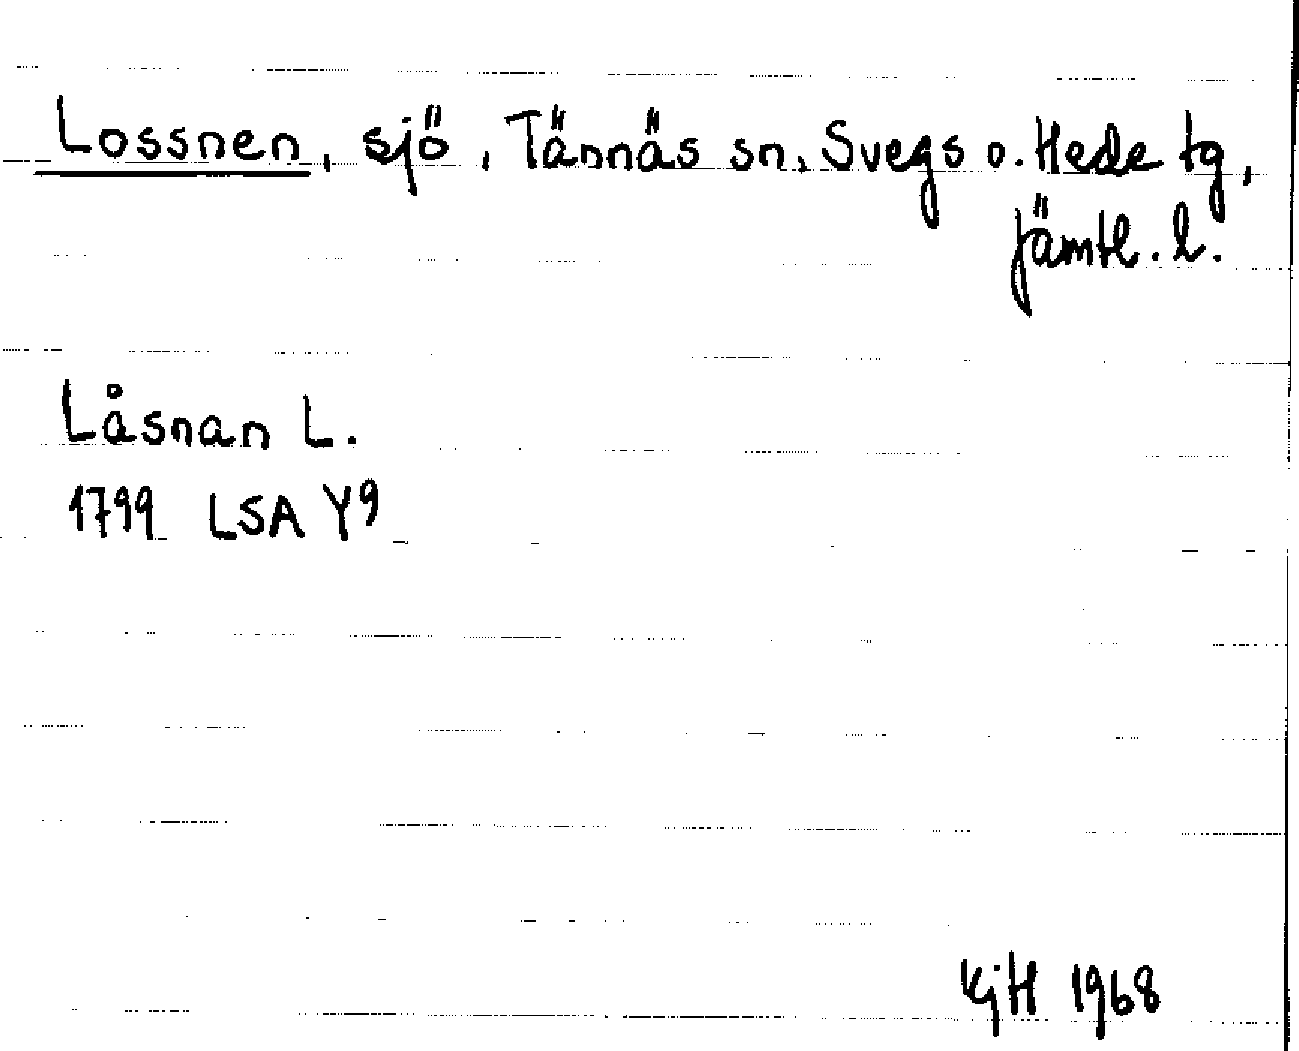 Lossnen, sjö, Tännäs sn, Svegs o. Hede tg,
Jämtl. l.
Låsnan L.
1799 LSA Y9
KjH 1968